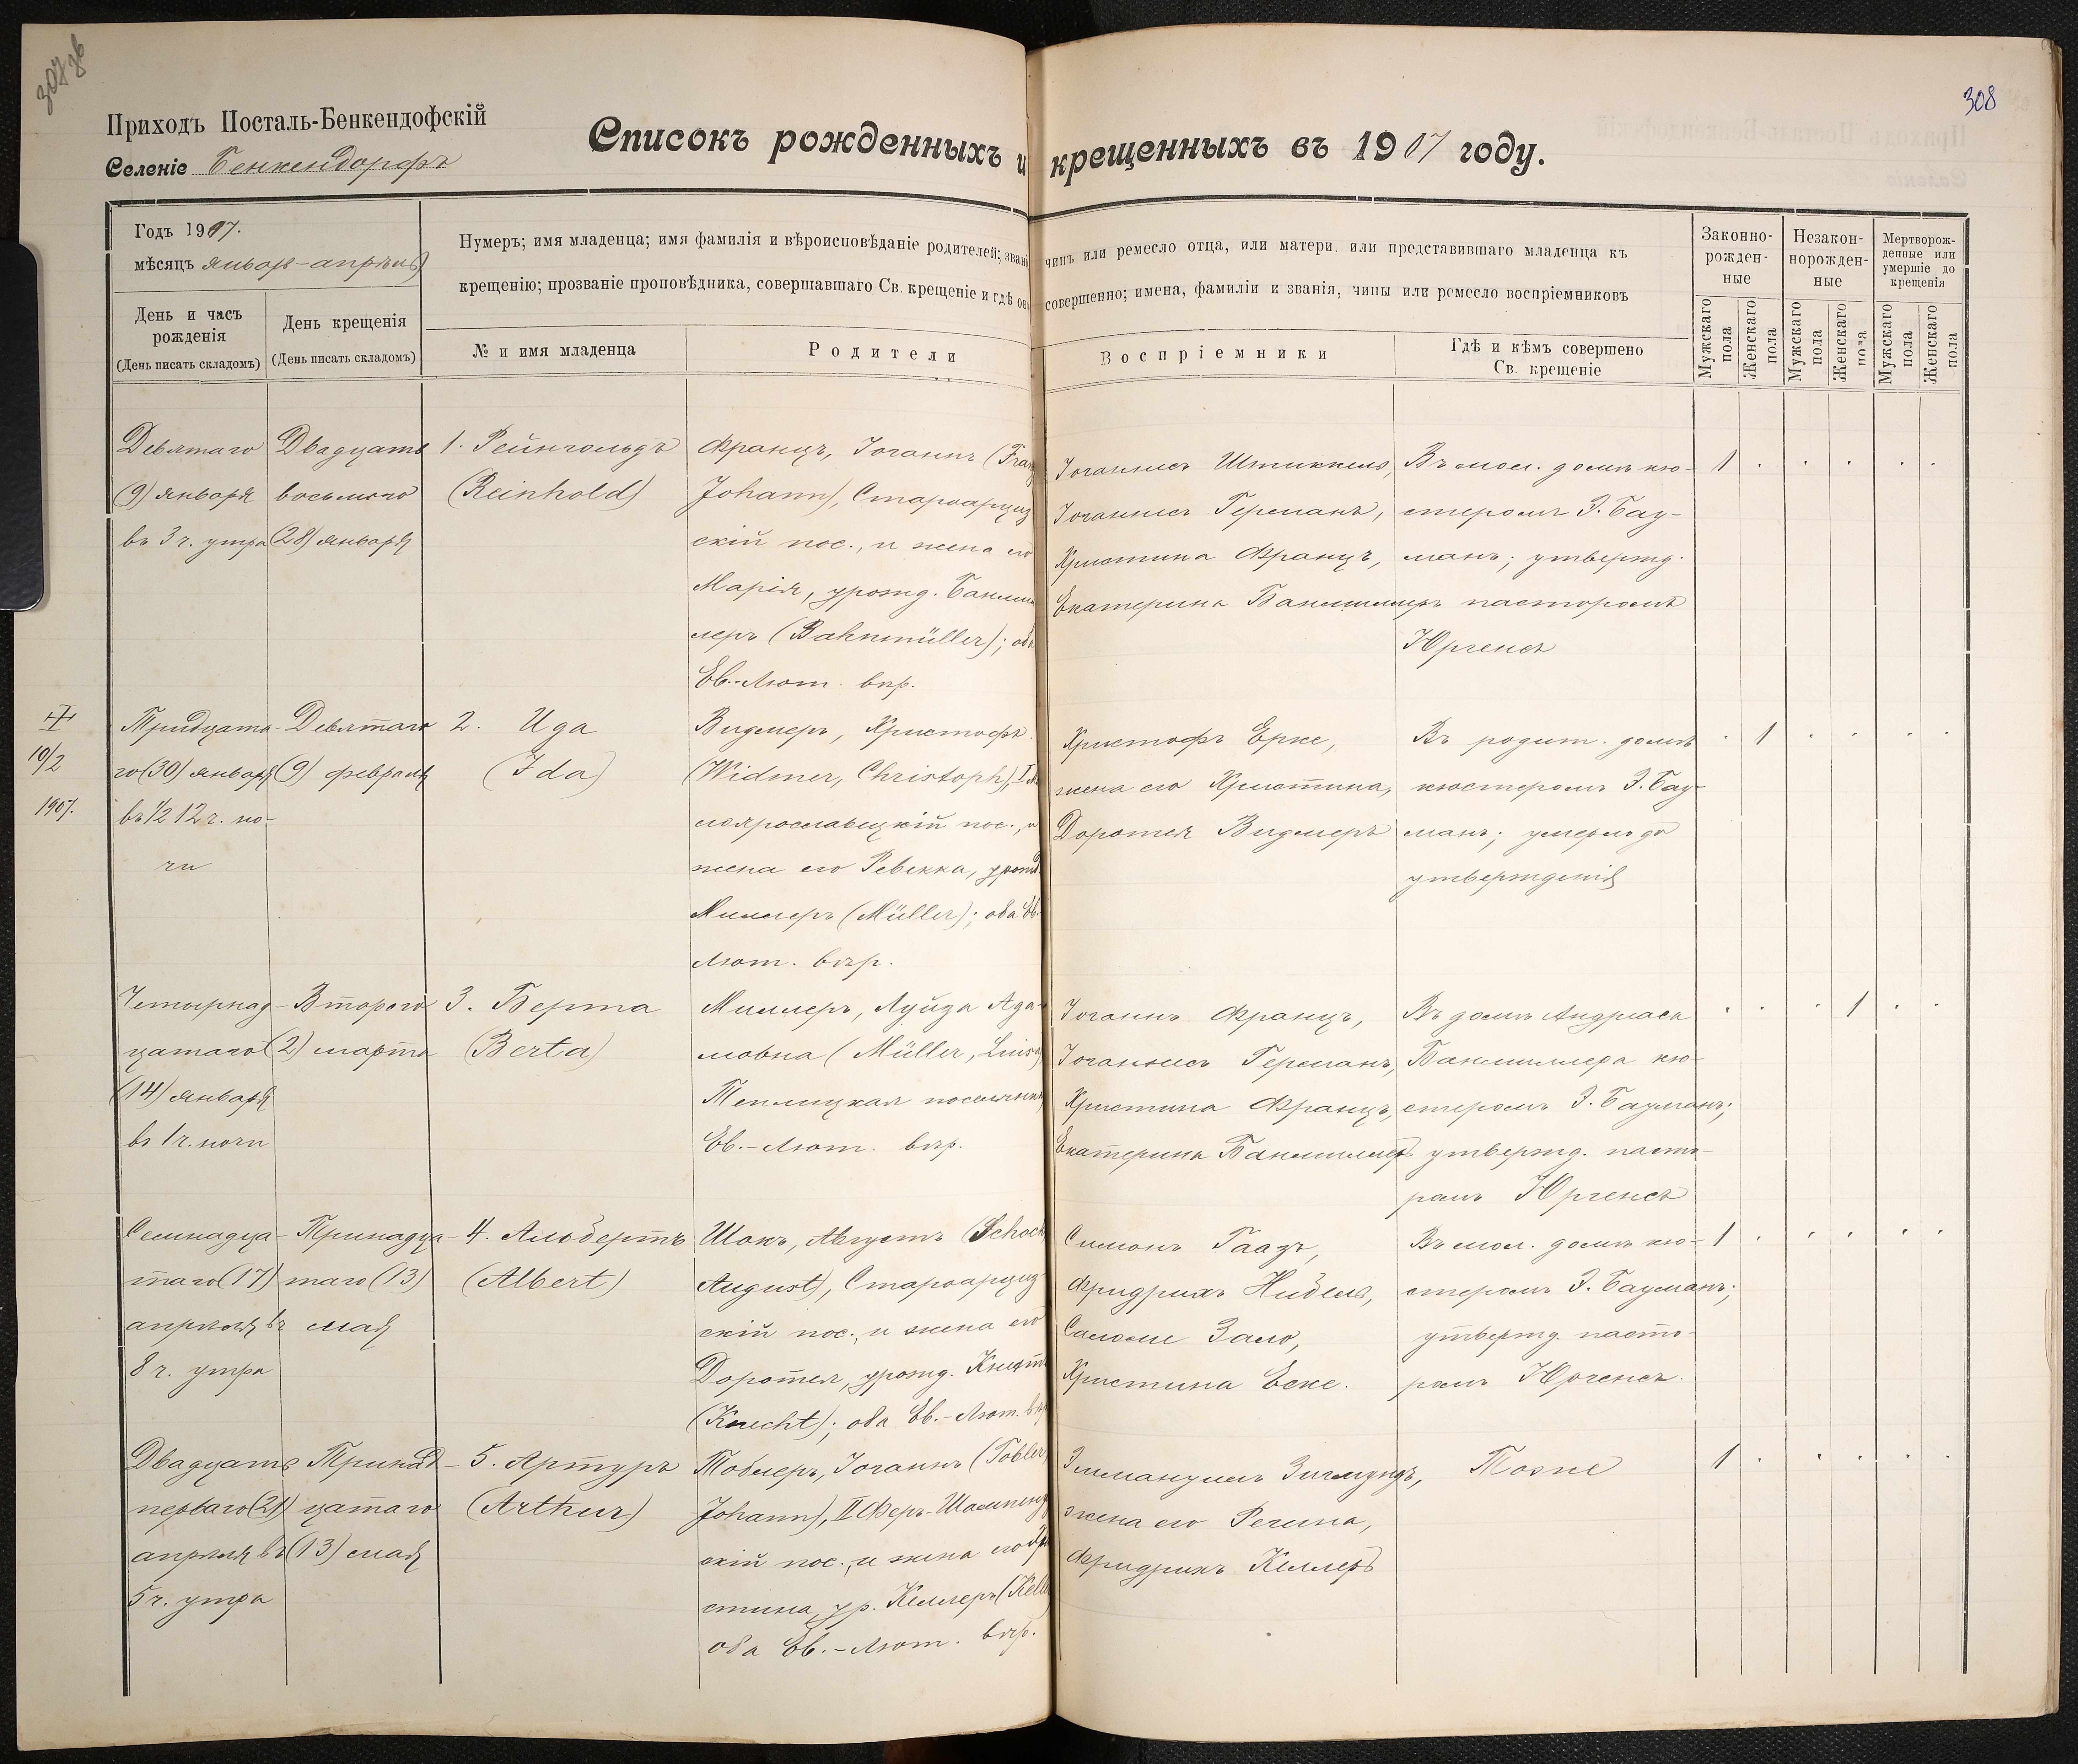 307 зб
308
Приходъ Посталь-Бенкендофскій
Селеніе Бенкендорфъ
Списокъ рожденныхъ и крещенныхъ въ 1907 году.
Годъ 1907.
мѣсяцъ январь-апрѣль
День и часъ рожденія
(День писать складомъ)
День крещенія
(День писать складомъ)
Нумеръ; имя младенца; имя фамилія и вѣроисповѣданіе родителей; званіе чинъ или ремесло отца, или матери, или представившаго младенца къ
крещенію; прозваніе проповѣдника, совершавшаго Св. крещеніе и гдѣ оно совершенно; имена, фамиліи и званія, чины или ремесло воспріемниковъ
№ и имя младенца
Родители
Воспріемники
Гдѣ и кѣмъ совершено
Св. крещеніе
Законно-
рожден-
ные
Незакон-
норожден-
ные
Мертворож-
денные или
умершіе до
крещенія
Мужскаго пола
Женскаго пола
Мужскаго пола
Женскаго пола
Мужскаго пола
Женскаго пола
Девятаго
(9) января
въ 3 ч. утра
Двадцать
восьмого
(28) января
1. Рейнгольдъ
(Reinhold)
Францъ, Іоганнъ (Franz
Johann), Староарциз
скій пос., и жена его
Марія, урожд. Банмил
леръ (Bahnmüller); оба
Ев.-Лют. вѣр.
Іоганнесъ Штиккель,
Іоганнесъ Германъ,
Христина Францъ,
Екатерина Банмиллеръ
Въ мол. домѣ кю-
стеромъ Э. Бау-
манъ; утвержд.
пасторомъ
Юргенсъ
1
10/2
1907.
Тридцата-
го (30) января
въ ½ 12 ч. но-
чи
Девятаго
(9) февраля
2. Ида
(Ida)
Видмеръ, Христофъ
(Widmer, Christoph), I М
лоярославецкій пос., и
жена его Ревекка, урожд.
Миллеръ (Müller); оба Ев.
Лют. вѣр.
Христофъ Ерке,
жена его Христина,
Доротея Видмеръ
Въ родит. домѣ
кюстеромъ Э. Бау-
манъ; умерло до
утвержденія
1
Четырнад-
цатаго
(14) января
въ 1 ч. ночи
Второго
(2) марта
3. Берта
(Berta)
Миллеръ, Луиза Ада-
мовна (Müller, Luisa)
Теплицкая поселянка
Ев.-Лют. вѣр.
Іоганнъ Францъ,
Іоганнесъ Германъ,
Христина Францъ,
Екатерина Банмиллеръ
Въ домѣ Андреаса
Банмиллера кю-
стеромъ Э. Бауманъ;
утвержд. пасто-
ромъ Юргенсъ
1
Семнадца-
таго (17)
апрѣля въ
8 ч. утра
Тринадца-
таго (13)
мая
4. Альбертъ
(Albert)
Шокъ, Августъ (Schock
August), Староарциз-
скій пос., и жена его
Доротея, урожд. Кнехтъ
(Knecht); оба Ев.-Лют. вѣр.
Симонъ Гаазъ,
Фридрихъ Нибель,
Саломе Зало,
Христина Еске.
Въ мол. домѣ кю-
стеромъ Э. Бауманъ;
утвержд. пасто-
ромъ Юргенсъ.
1
Двадцать
перваго (21)
апрѣля въ
5 ч. утра
Тринад-
цатаго
(13) мая
5. Артуръ
(Arthur)
Тоблеръ, Іоганнъ (Tobler
Johann), II Феръ-Шампенуаз
скій пос., и жена его Хри
стина, ур. Келлеръ (Kelle
оба Ев.-Лют. вѣр.
Эммануилъ Зигмундъ,
жена его Регина,
Фридрихъ Келлеръ
Тоже
1